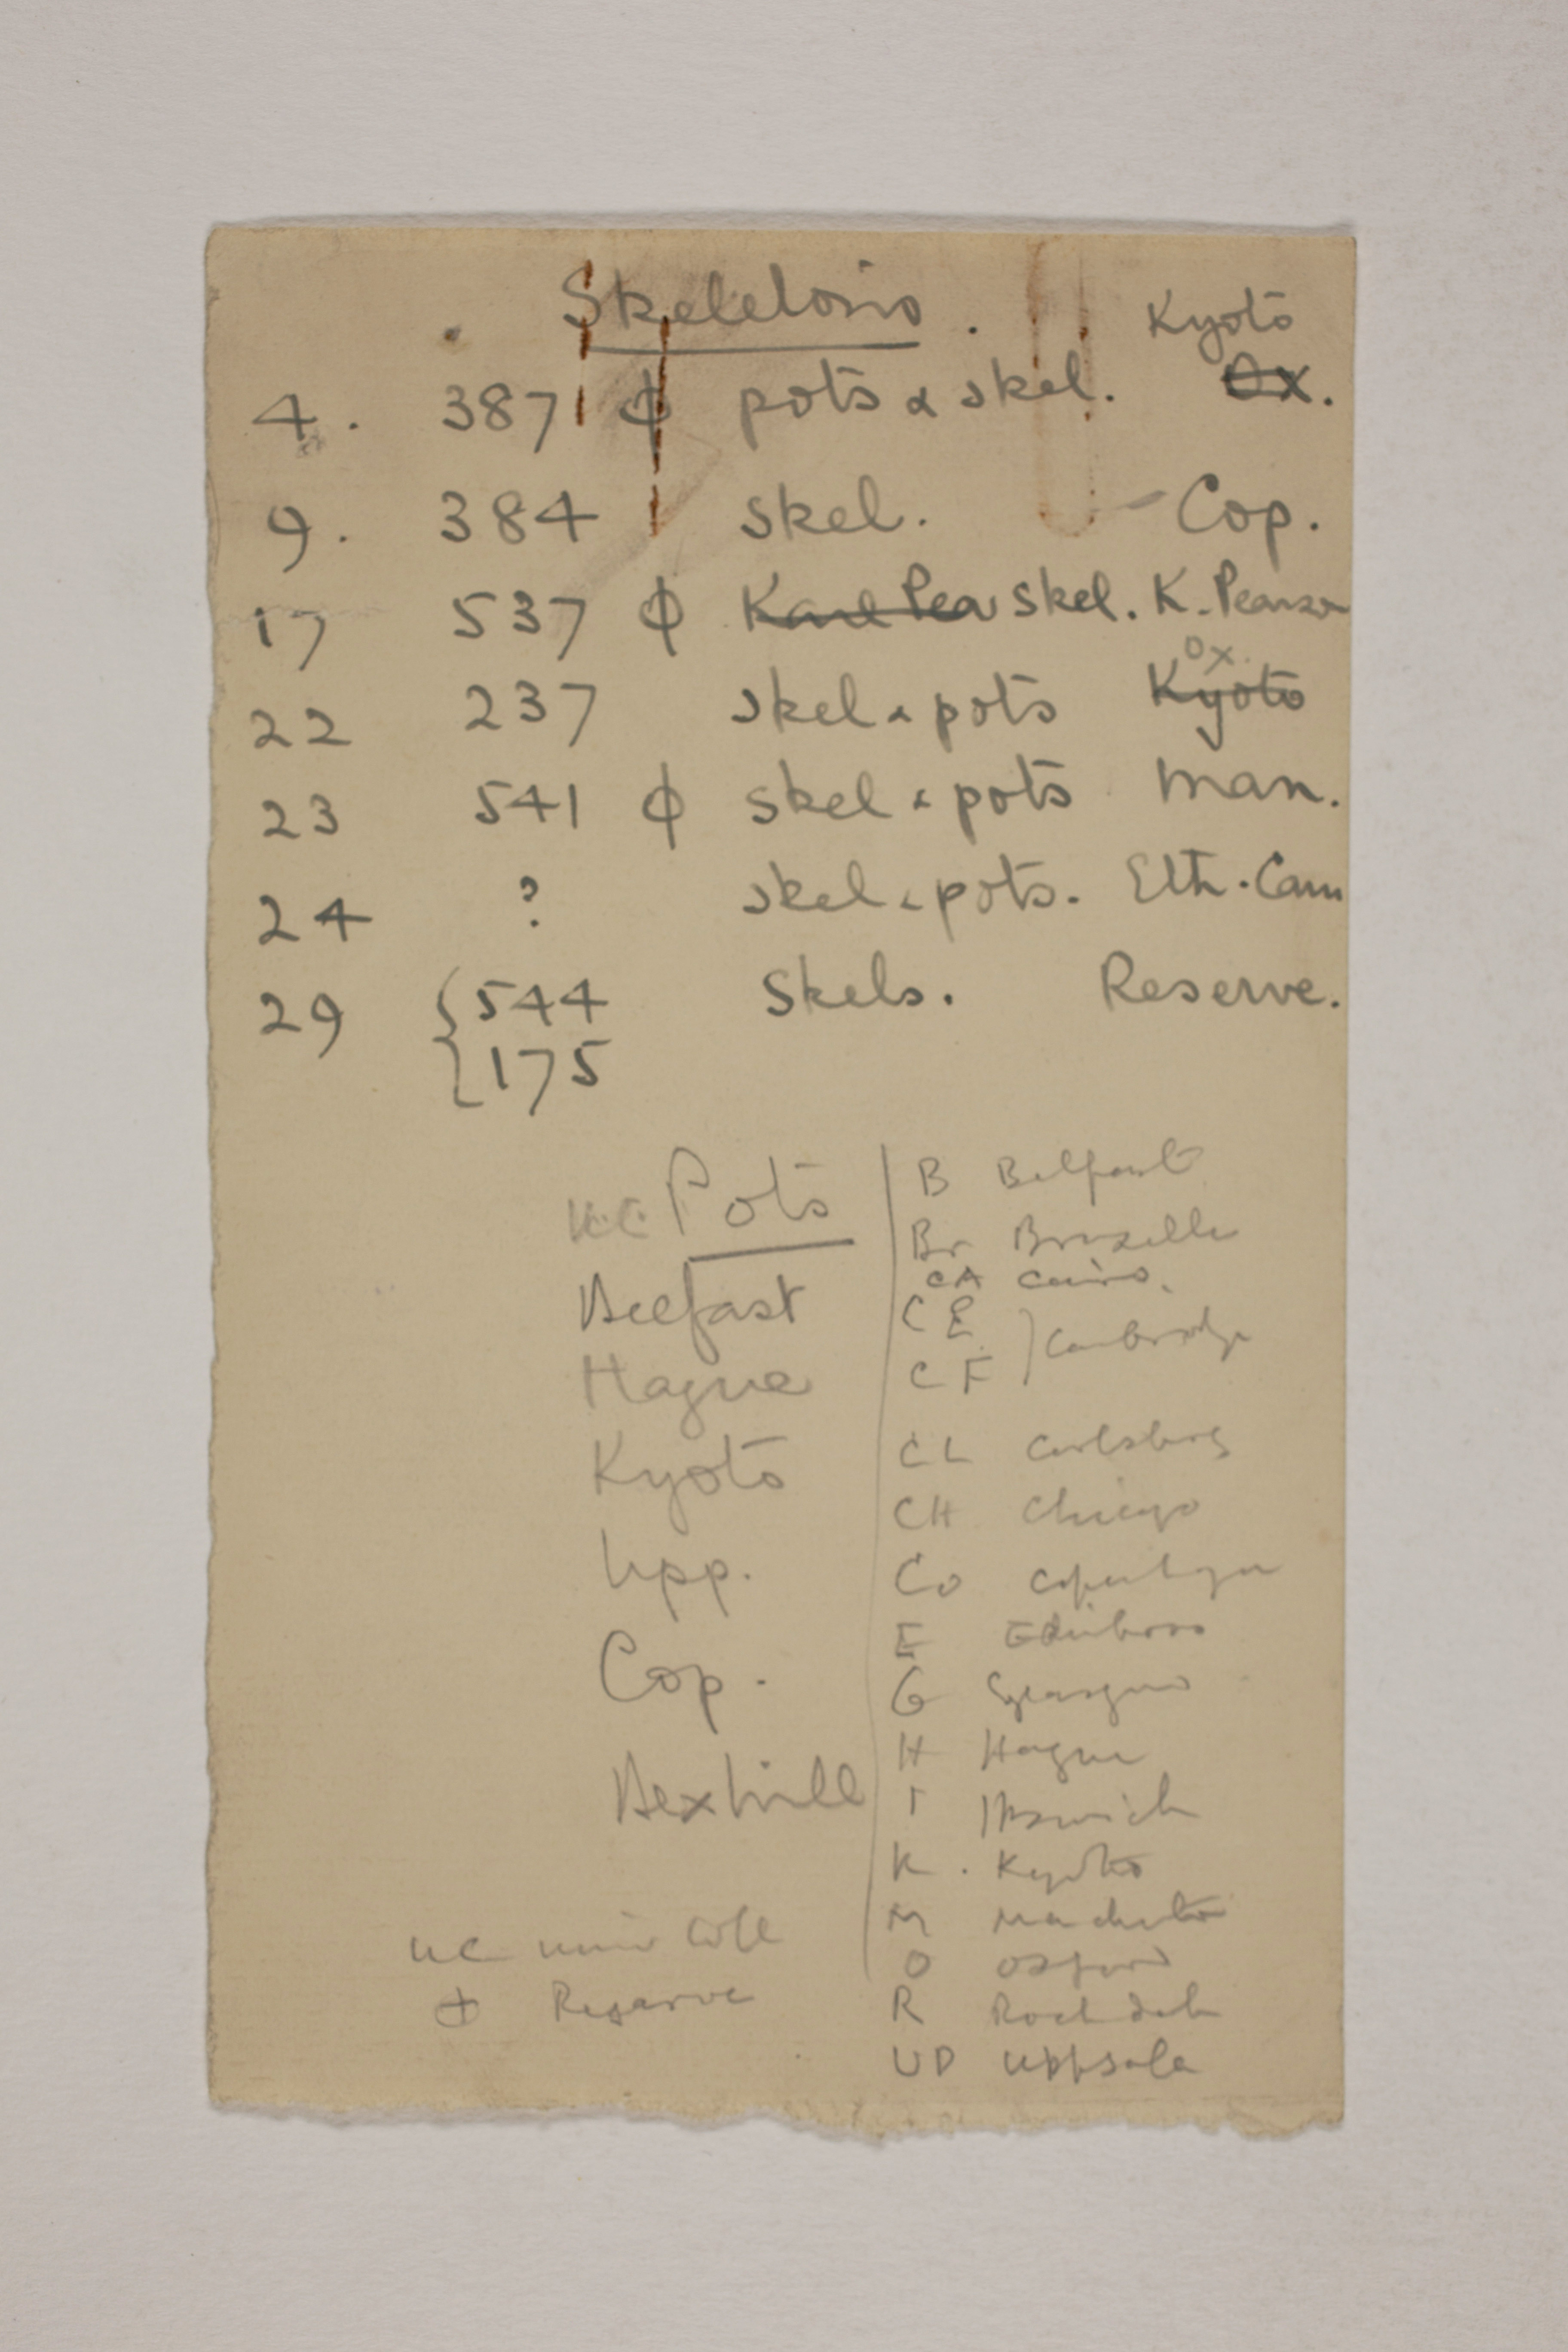 Skeletons.
Kyoto
4. 387 ϕ pots & skel. Ox.
9. 384 skel. - Cop.
17 537 ϕ Karl Pea skel. K. Pearson
Ox.
22 237 skel & pots Kyoto
23 541 ϕ skel & pots Man.
24 ? skel & pots. Eth. Cam
29 { 544 Skels. Reserve.
175
U.C. Pots
Belfast
Hague
Kyoto
Upp.
Cop.
Bexhill
UC Univ Coll
+ Reserve
B Belfast
Br Bruxelles
CA Cairo.
C E } Cambridge
C F
CL Carlsberg
CH Chicago
Co Copenhagen
E Edinboro
G Glasgow
H Hague
I Ipswich
K. Kyoto
M Manchester
O Oxford
R Rochdale
UP Uppsala